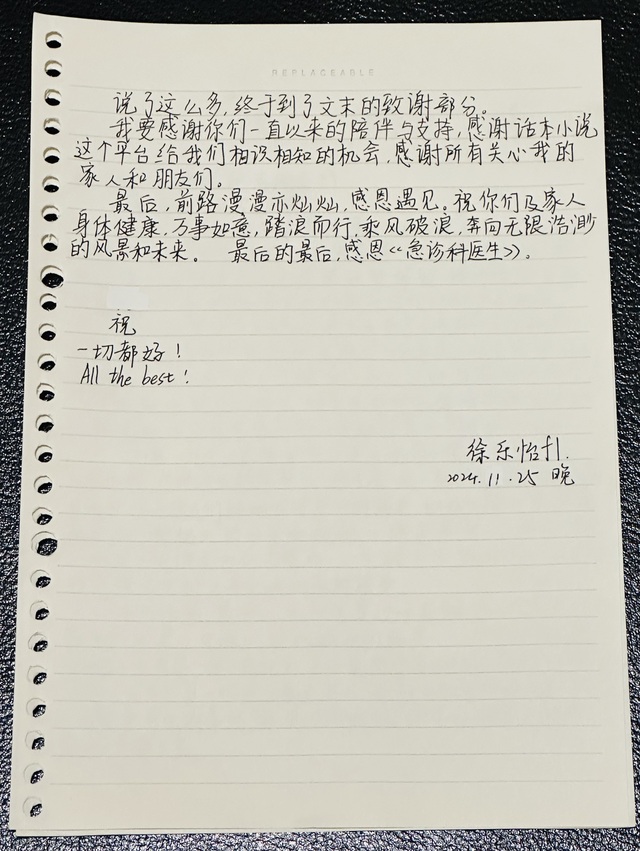 REPLACEABLE
说了这么多,终于到了文末的致谢部分。
我要感谢你们一直以来的陪伴与支持,感谢话本小说
这个平台给我们相识相知的机会,感谢所有关心我的
家人和朋友们。
最后,前路漫漫亦灿灿,感恩遇见。祝你们及家人
身体健康,万事如意,踏浪而行,乘风破浪,奔向无限浩渺
的风景和未来。 最后的最后,感恩《急诊科医生》。
祝
一切都好!
All the best!
徐乐怡
2024.11.25 晚